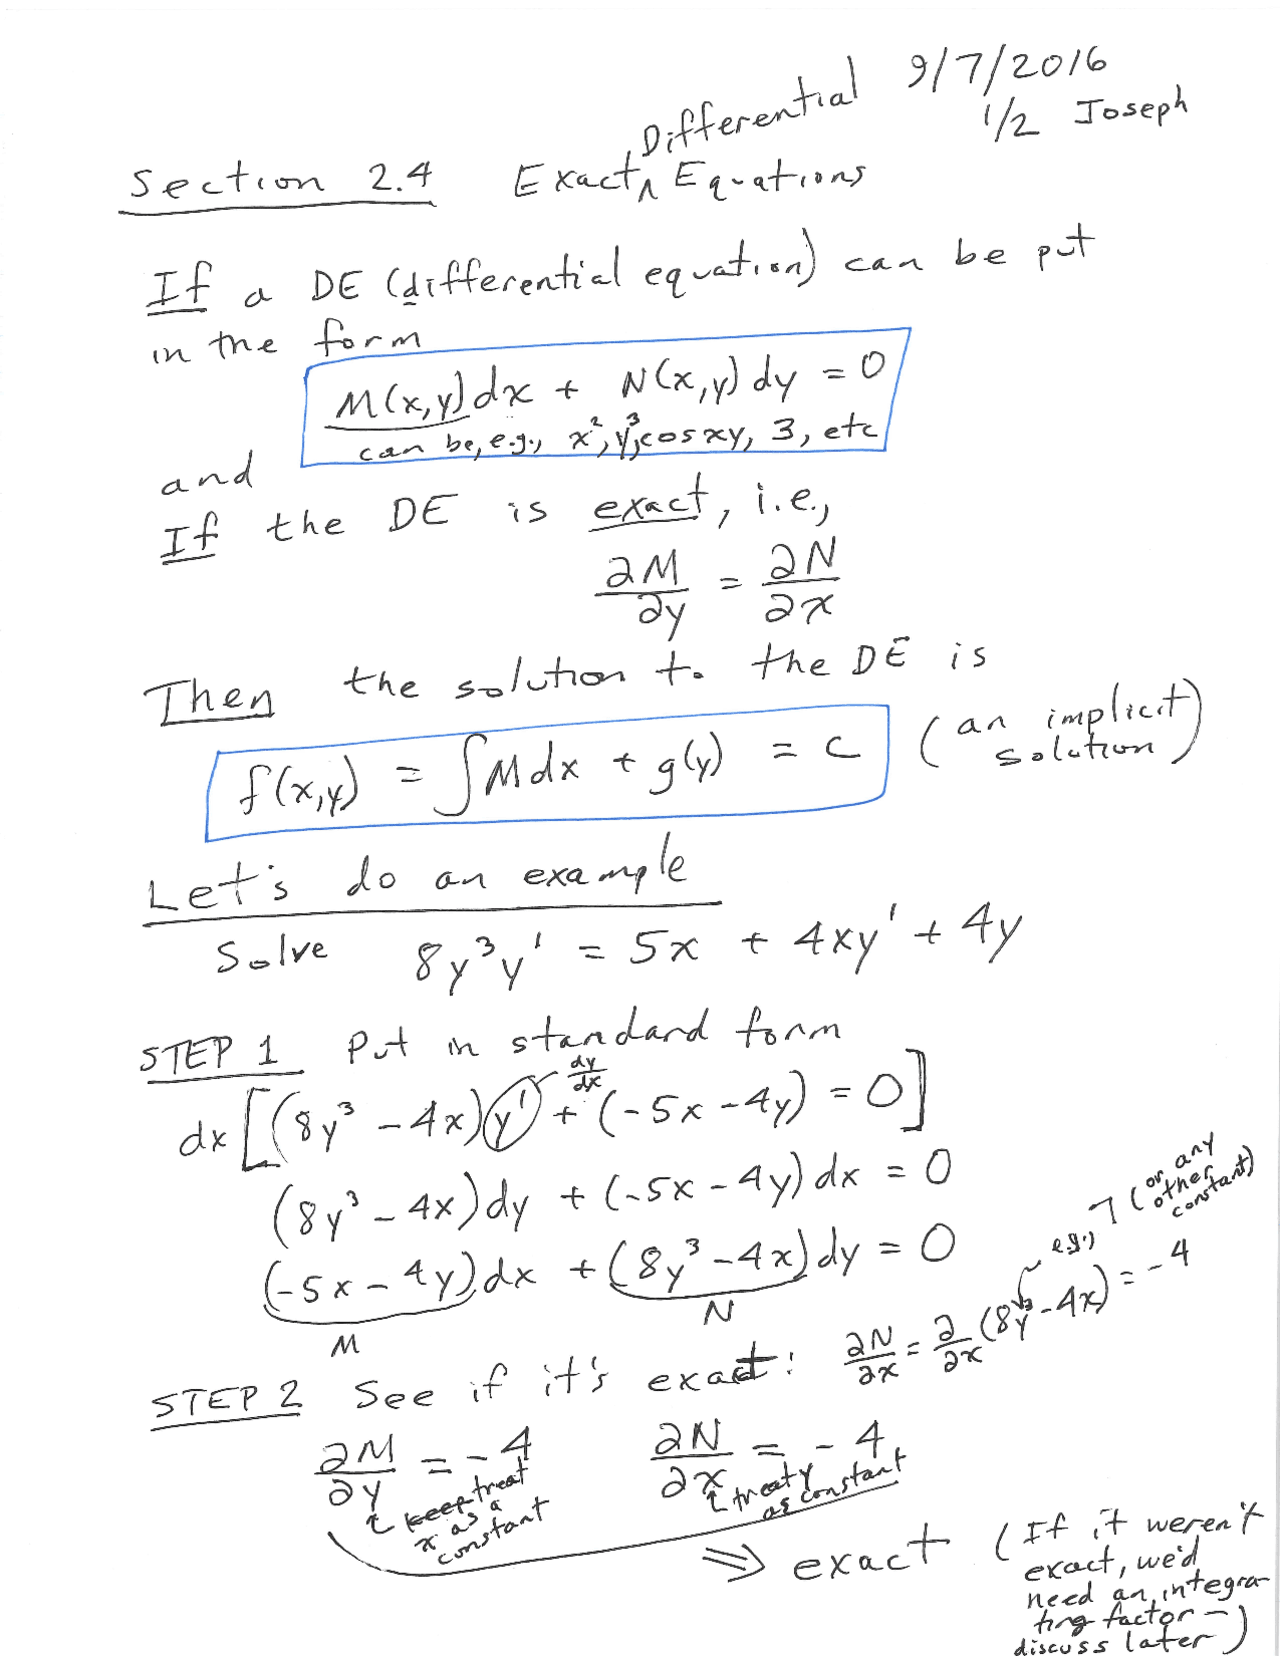 9/7/2016
1/2 Joseph
Section 2.4 Exact ∧ Differential Equations
If a DE (differential equation) can be put
in the form
M(x,y)dx + N(x,y)dy = 0
can be, e.g., x², y³, cosxy, 3, etc
and
If the DE is exact, i.e.,
∂M/∂y = ∂N/∂x
Then the solution to the DE is
f(x,y) = ∫Mdx + g(y) = c (an implicit solution)
Let's do an example
Solve 8y³y' = 5x + 4xy' + 4y
STEP 1 Put in standard form
dy/dx
dx[(8y³ - 4x)y' + (-5x - 4y) = 0]
(8y³ - 4x)dy + (-5x - 4y)dx = 0
(-5x - 4y)dx + (8y³ - 4x)dy = 0
M N
e.g., 7 (or any other constant)
STEP 2 See if it's exact: ∂N/∂x = ∂/∂x (8y³ - 4x) = -4
∂M/∂y = -4 ∂N/∂x = -4
keep treat x as a constant
treat y as constant
⇒ exact (If it weren't
exact, we'd
need an integra-
ting factor -
discuss later)